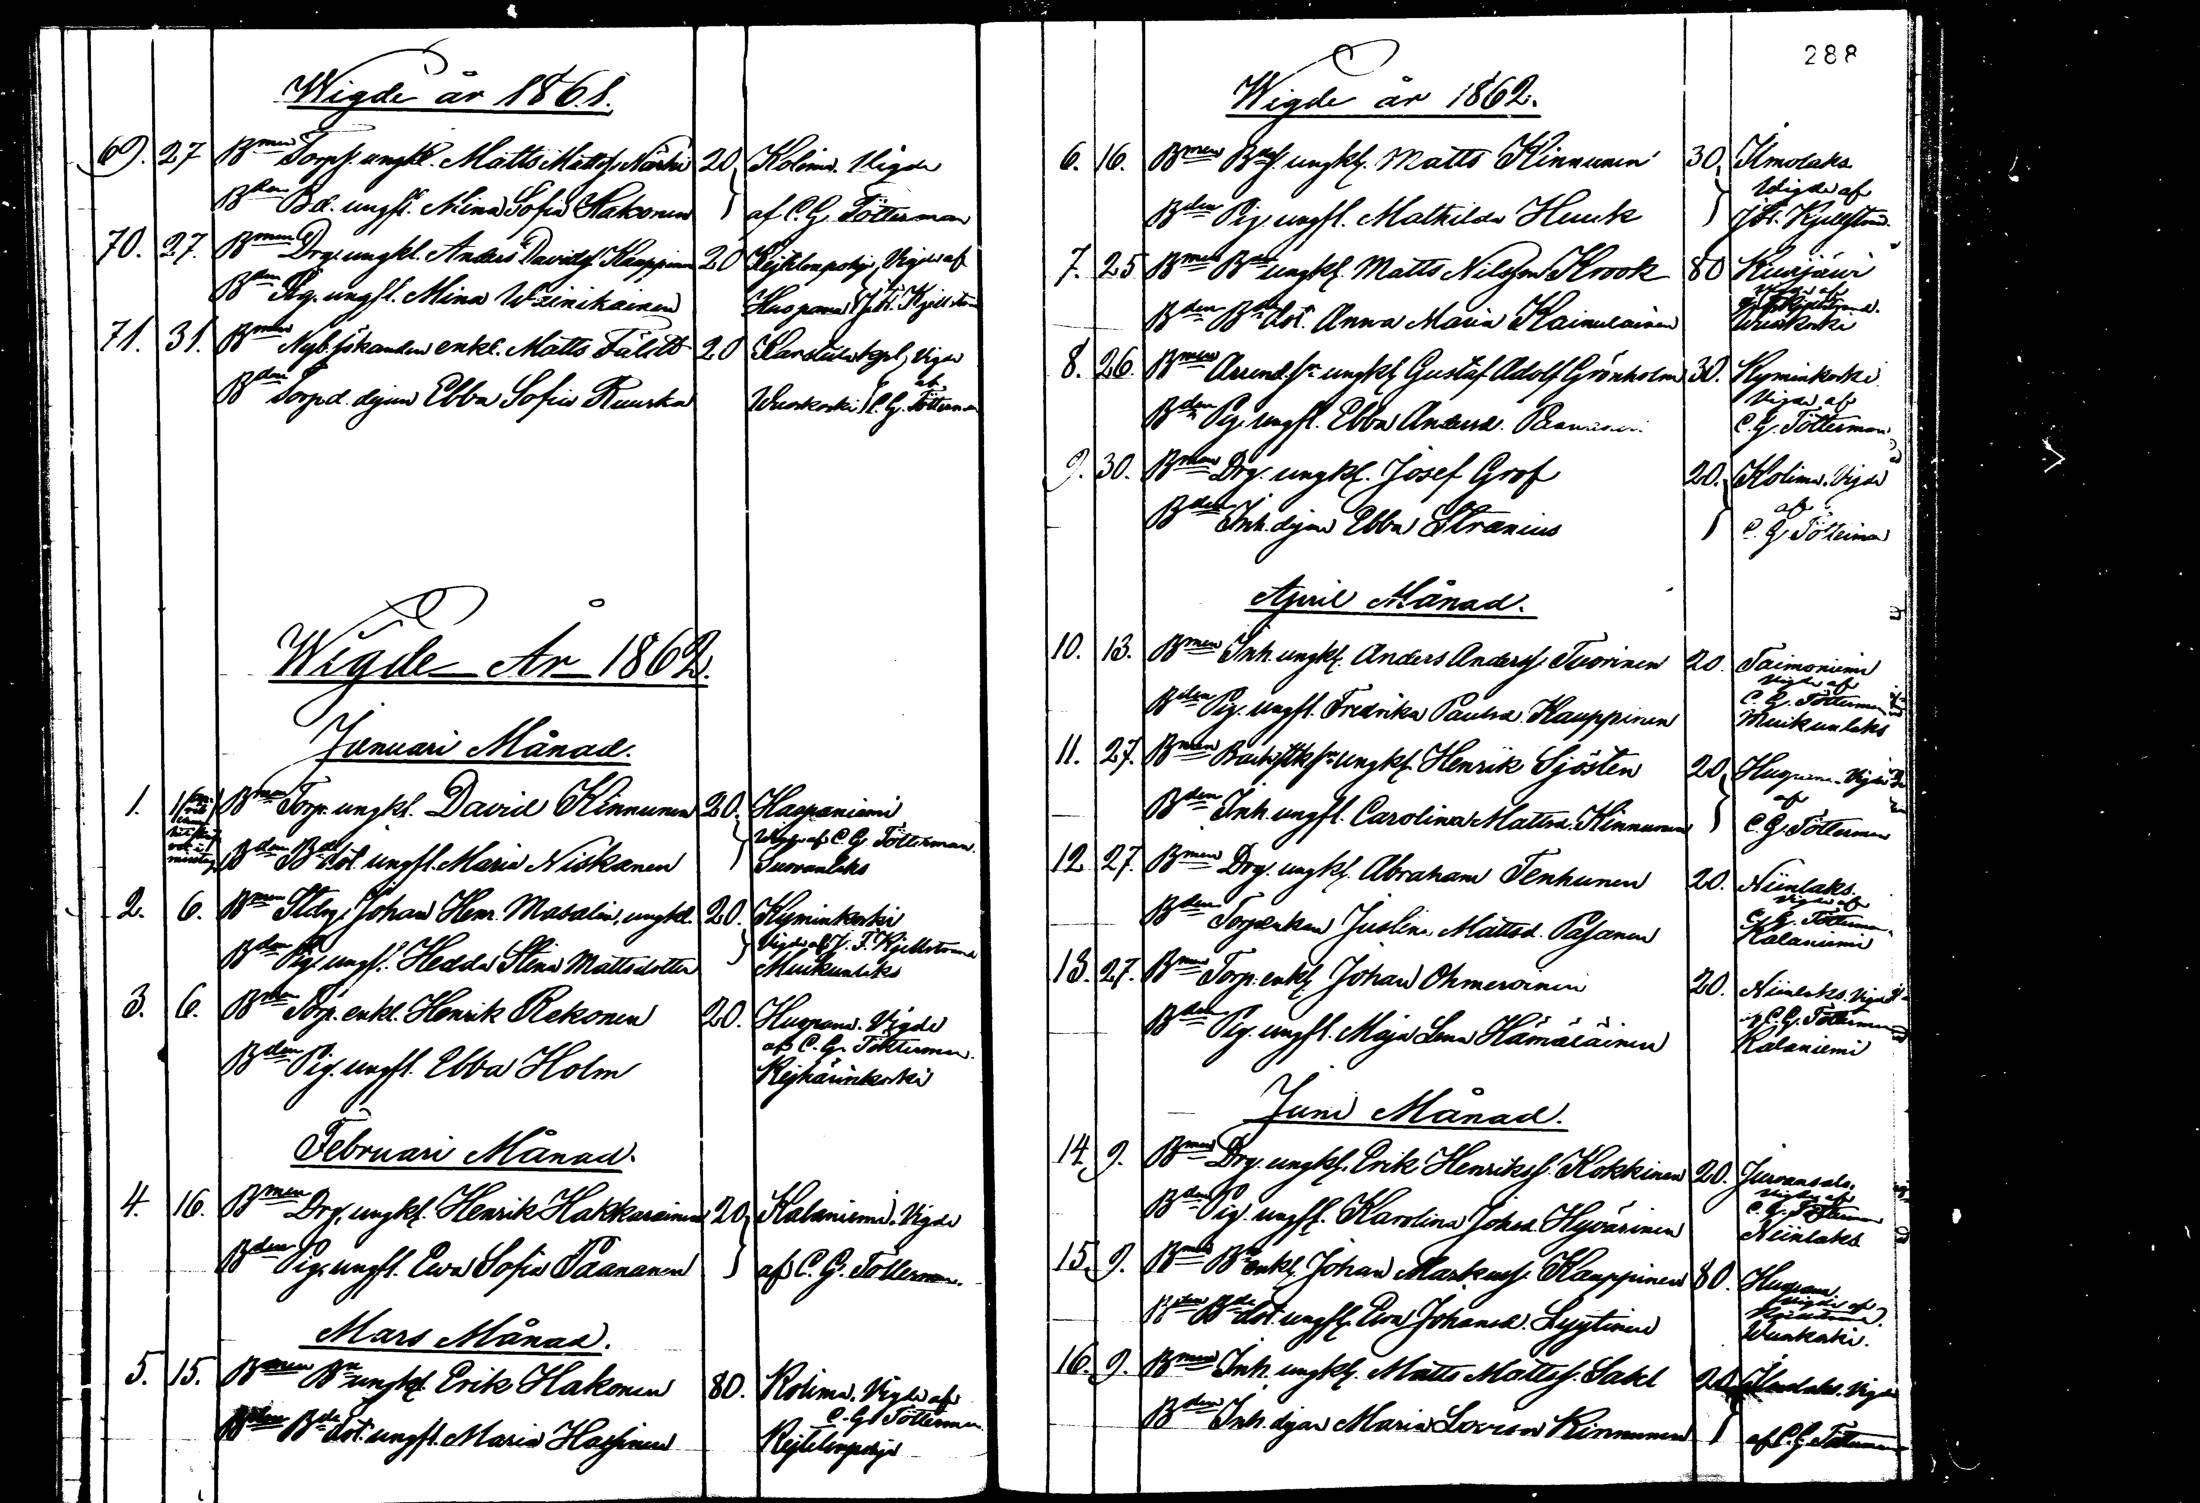 Wigde år 1861.
69. 27 Bmen Torps. ungkl. Matts Mattss. Närhi 20 Kolima. Vigde
Bden Bd. ungfl. Mina Sofia Hakonen af C. G. Tötterman
70. 27. Bmen Drg. ungkl. Anders Davidss. Kauppinen 20 Kejtelenpohja, Vigde af
Bden Pig. ungfl. Mina Wäinikainen Huopana J. F. Kjellstrand
71. 31. Bmen Nyb. sökanden enkl. Matts Fälitt 20 Karstula kpl, Vigde
af
Bden Torpd. dejan Ebba Sofia Ruuska Wuoskoski C. G. Tötterman
Wigde År 1862.
Januari Månad.
1. 1 Bmen Torp. ungkl. David Kinnunen 20. Haapaniemi
Vigde af C. G. Tötterman.
Bden Bde dot. ungfl. Maria Niskanen Suovanlaks
2. 6. Bmen Johan Henr. Masalin, ungkl. 20. Kyminkoski
Vigde af J. F. Kjellstrand
Bden Pig. ungfl. Hedda Stina Mattsdotter Muikunlaks
3. 6. Bmen Torp. enkl. Henrik Rekonen 20. Huopana. Vigde
af C. G. Tötterman.
Bden Pig. ungfl. Ebba Holm Kejhärinkoski
Februari Månad.
4. 16. Bmen Drg. ungkl. Henrik Hakkarainen 20 Kalaniemi. Vigde
Bden Pig. ungfl. Ewa Sofia Paananen af C. G. Tötterman.
Mars Månad.
5. 15. Bmen Bn ungkl. Erik Hakonen 80. Kolima. Vigde af
C. G. Tötterman
Bden Bde dot. ungfl. Maria Hassinen Kejtelenpohja
288
Wigde år 1862.
6. 16. Bmen ungkl. Matts Kinnunen 30. Ilmolaks
Vigde af
Bden Pig. ungfl. Mathilda Huuk J. F. Kjellstrand.
7. 25 Bmen Bn ungkl. Matts Nilsson Krook 80 Kiwijärwi
Vigde af
J. F. Kjellstrand.
Bden Bde dot. Anna Maria Kainulainen Wuoskoski
8. 26. Bmen Arrend. sn ungkl. Gustaf Adolf Grönholm 30. Kyminkoski
Vigde af
Bden Pig. ungfl. Ebba Andersd. Paananen C. G. Tötterman
9. 30. Bmen Drg. ungkl. Josef Grof 20. Kolima. Vigde
af
Bden Inh. dejan Ebba Stranius C. G. Tötterman
April Månad.
10. 13. Bmen Inh. ungkl. Anders Anderss. Tuorinen 20. Taimoniemi
Vigde af
C. G. Tötterman
Bden Pig. ungfl. Fredrika Paulsd. Kauppinen Muikunlaks
11. 27. Bmen ungkl. Henrik Sjösten 20 Huopana. Vigde
af
Bden Inh. ungfl. Carolina Mattsd. Kinnunen C. G. Tötterman
12. 27. Bmen Drg. ungkl. Abraham Tenhunen 20. Niinlaks.
Vigde af
C. G. Tötterman.
Bden Torpenkan Justina Mattsd. Pasanen Kalaniemi
13. 27. Bmen Torp. enkl. Johan Ohmeroinen 20. Niinlaks. Vigde
af C. G. Tötterman
Bden Pig. ungfl. Maja Lena Hämäläinen Kalaniemi
Juni Månad.
14. 9. Bmen Drg. ungkl. Erik Henrikss. Kokkinen 20.
Vigde af
C. G. Tötterman
Bden Pig. ungfl. Karolina Johsd. Hyvärinen Niinlaks
15. 9. Bmen Bn enkl. Johan Markuss. Kauppinen 80. Huopana.
Vigde af
Bden Bde dot. ungfl. Ewa Johansd. Lyytinen Wuoskoski.
16. 9. Bmen Inh. ungkl. Matts Mattss. Sakl 20 Ilmolaks. Vigde
Bden Inh. dejan Maria Lovisa Kinnunen af C. G. Tötterman